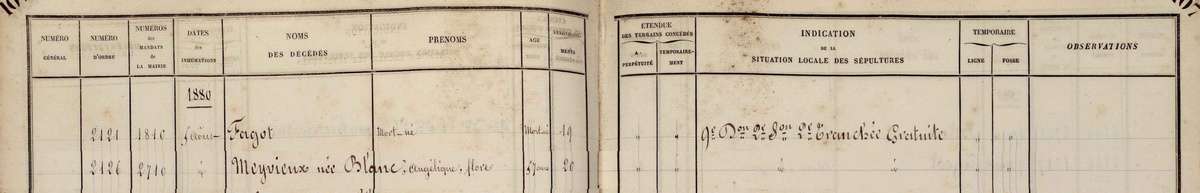 NUMÉRO GÉNÉRAL NUMÉRO D'ORDRE NUMÉROS des MANDATS de LA MAIRIE DATES des INHUMATIONS NOMS DES DÉCÉDÉS PRÉNOMS AGE ETENDUE DES TERRAINS CONCÉDÉS A PERPÉTUITÉ TEMPORAIREMENT INDICATION DE LA SITUATION LOCALE DES SÉPULTURES TEMPORAIRE LIGNE FOSSE OBSERVATIONS
1880
2121 1810 Fagot Mort-né Mort-né 19 " " 9e Don 2e Son 2e Tranchée Gratuite " "
2126 2710 Meyvieux née Blanc Angélique flore 20 " "